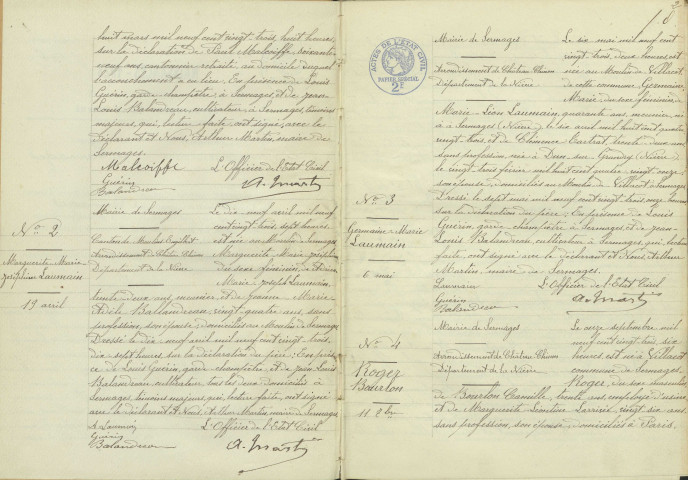 huit mars mil neuf cent vingt trois, huit heures,
sur la déclaration de Paul Malcoiffe soixante
neuf ans cantonnier retraité au domicile duquel
l'accouchement a eu lieu. En présence de Louis
Guérin, garde champêtre à Sermages et de Jean
Louis Balandreau, cultivateur à Sermages, témoins
majeurs, qui, lecture faite, ont signé avec le
déclarant et Nous, Arthur Martin, maire de
Sermages.
Malcoiffe L'Officier de l'Etat Civil
Guérin
Balandreau A. Martin
No 2
Marguerite Marie
Joséphine Laumain
19 avril
Mairie de Sermages
Canton de Moulins Engilbert
Arrondissement de Château Chinon
Département de la Nièvre
Le dix neuf avril mil neuf
cent vingt trois, sept heures,
est née au Moulin de Sermages
Marguerite Marie Joséphine
du sexe féminin, de
Marie Joseph Laumain,
trente deux ans, meunier et de Jeanne Marie
Adèle Balandreau, vingt quatre ans, sans
profession, son épouse, domiciliés au Moulin de Sermages
Dressé le dix neuf avril mil neuf cent vingt trois,
dix sept heures sur la déclaration du père ; En présence
de Louis Guérin, garde champêtre et de Jean Louis
Balandreau, cultivateur, tous les deux domiciliés à
Sermages, témoins majeurs qui, lecture faite, ont signé
avec le déclarant et Nous Arthur Martin maire de Sermages
Laumain L'Officier de l'Etat Civil
Guérin
Balandreau A. Martin
ACTES DE L'ETAT CIVIL
PAPIER SPECIAL
2F
No 3
Germaine Marie
Laumain
6 mai
Mairie de Sermages
Arrondissement de Château Chinon
Département de la Nièvre
Le six mai mil neuf cent
vingt trois, deux heures est
née au Moulin de Villacot
de cette commune Germaine
Marie du sexe féminin de
Marie Léon Laumain, quarante ans, meunier, né
à Sermages (Nièvre) le six août mil huit cent quatre
vingt trois, et de Clémence Cartrat, trente deux ans
sans profession, née à Dun sur Grandry (Nièvre)
le vingt trois février mil huit cent quatre vingt onze
son épouse, domiciliés au Moulin de Villacot à Sermages
Dressé le sept mai mil neuf cent vingt trois onze heures
sur la déclaration du père. En présence de Louis
Guérin, garde champêtre à Sermages et de Jean
Louis Balandreau, cultivateur à Sermages qui, lecture
faite, ont signé avec le déclarant et Nous Arthur
Martin, maire de Sermages.
Laumain L'Officier de l'Etat Civil
Guérin
Balandreau A. Martin
No 4
Roger
Bourlon
11 7bre
Mairie de Sermages
Arrondissement de Château Chinon
Département de la Nièvre
Le onze septembre mil
neuf cent vingt trois, six
heures, est né à Villacot
commune de Sermages,
Roger, du sexe masculin
de Bourlon Camille, trente ans, employé d'usine
et de Marguerite Léontine Larrivé, vingt six ans,
sans profession, son épouse, domiciliés à Paris.